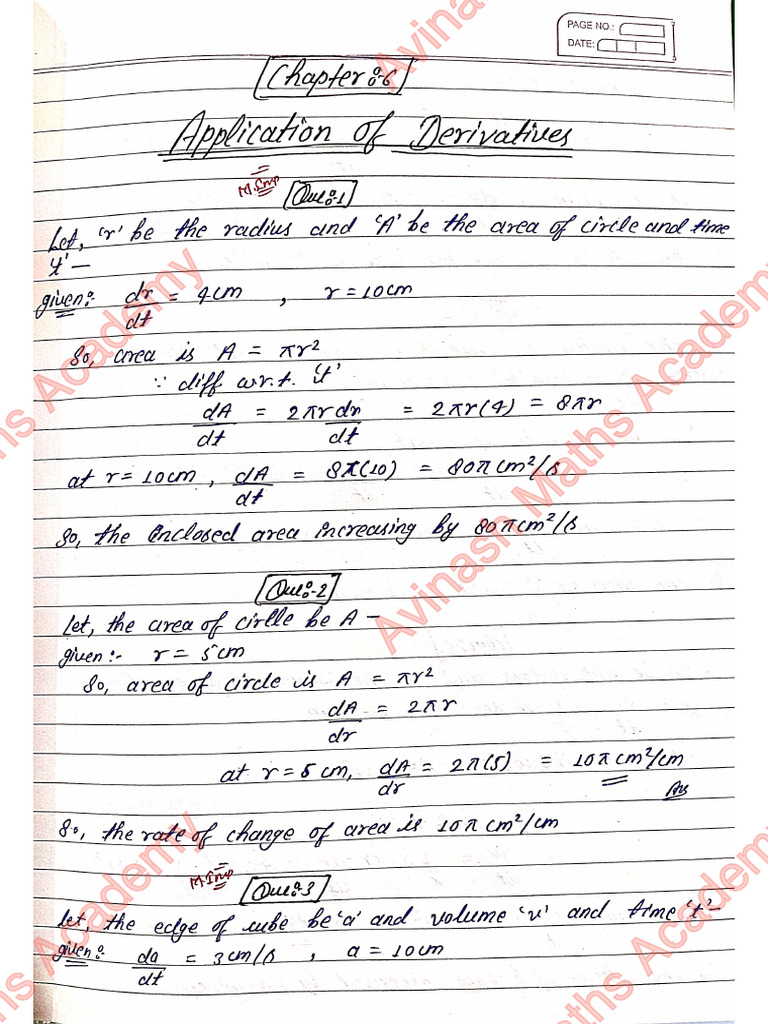 PAGE NO.:
DATE:
Chapter:-6
Application of Derivatives
M.Imp
Que:-1
Let, 'r' be the radius and 'A' be the area of circle and time
't'—
given:- dr/dt = 4cm , r = 10cm
So, area is A = πr²
∵ diff w.r.t. 't'
dA/dt = 2πr dr/dt = 2πr(4) = 8πr
at r = 10cm, dA/dt = 8π(10) = 80π cm²/s
So, the enclosed area increasing by 80πcm²/s
Que:-2
Let, the area of cirlle be A —
given:- r = 5cm
So, area of circle is A = πr²
dA/dr = 2πr
at r = 5 cm, dA/dr = 2π(5) = 10π cm²/cm
Ans
So, the rate of change of area is 10π cm²/cm
M.Imp
Que:-3
Let, the edge of cube be 'a' and volume 'v' and time 't'—
given:- da/dt = 3cm/s , a = 10cm
Avinash Maths Academy